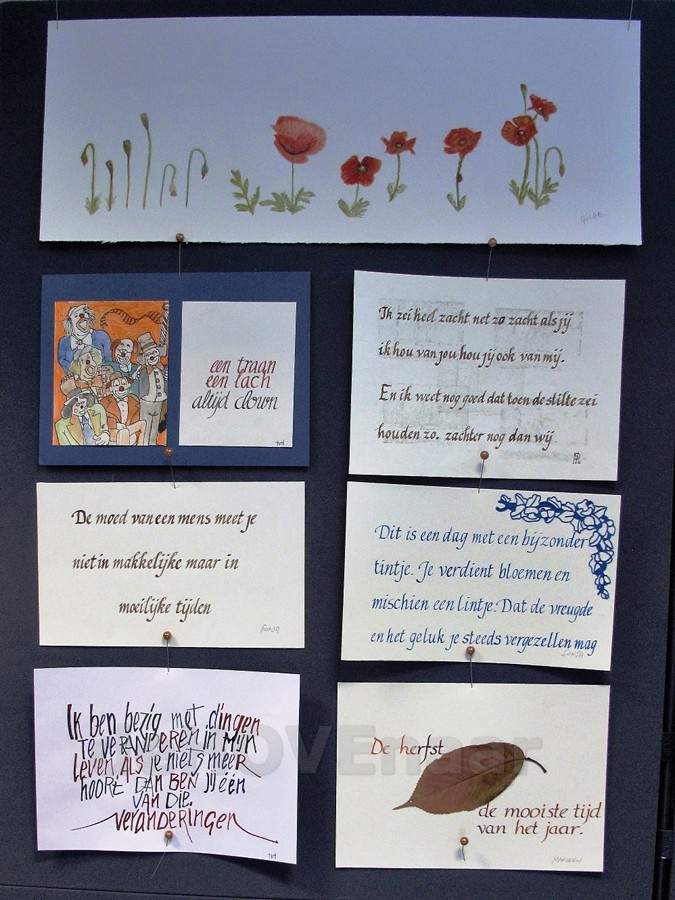 HILDE
een traan
een lach
altijd clown
Ik zei heel zacht net zo zacht als jij
ik hou van jou hou jij ook van mij.
En ik weet nog goed dat toen de stilte zei
houden zo. zachter nog dan wij
De moed van een mens meet je
niet in makkelijke maar in
moeilijke tijden
Dit is een dag met een bijzonder
tintje. Je verdient bloemen en
mischien een lintje. Dat de vreugde
en het geluk je steeds vergezellen mag
Ik ben bezig met dingen
te veranderen in mijn
leven. Als je niets meer
hoort dan ben jij één
van die
veranderingen
De herfst
de mooiste tijd
van het jaar.
MARLEEN
OVEnaar